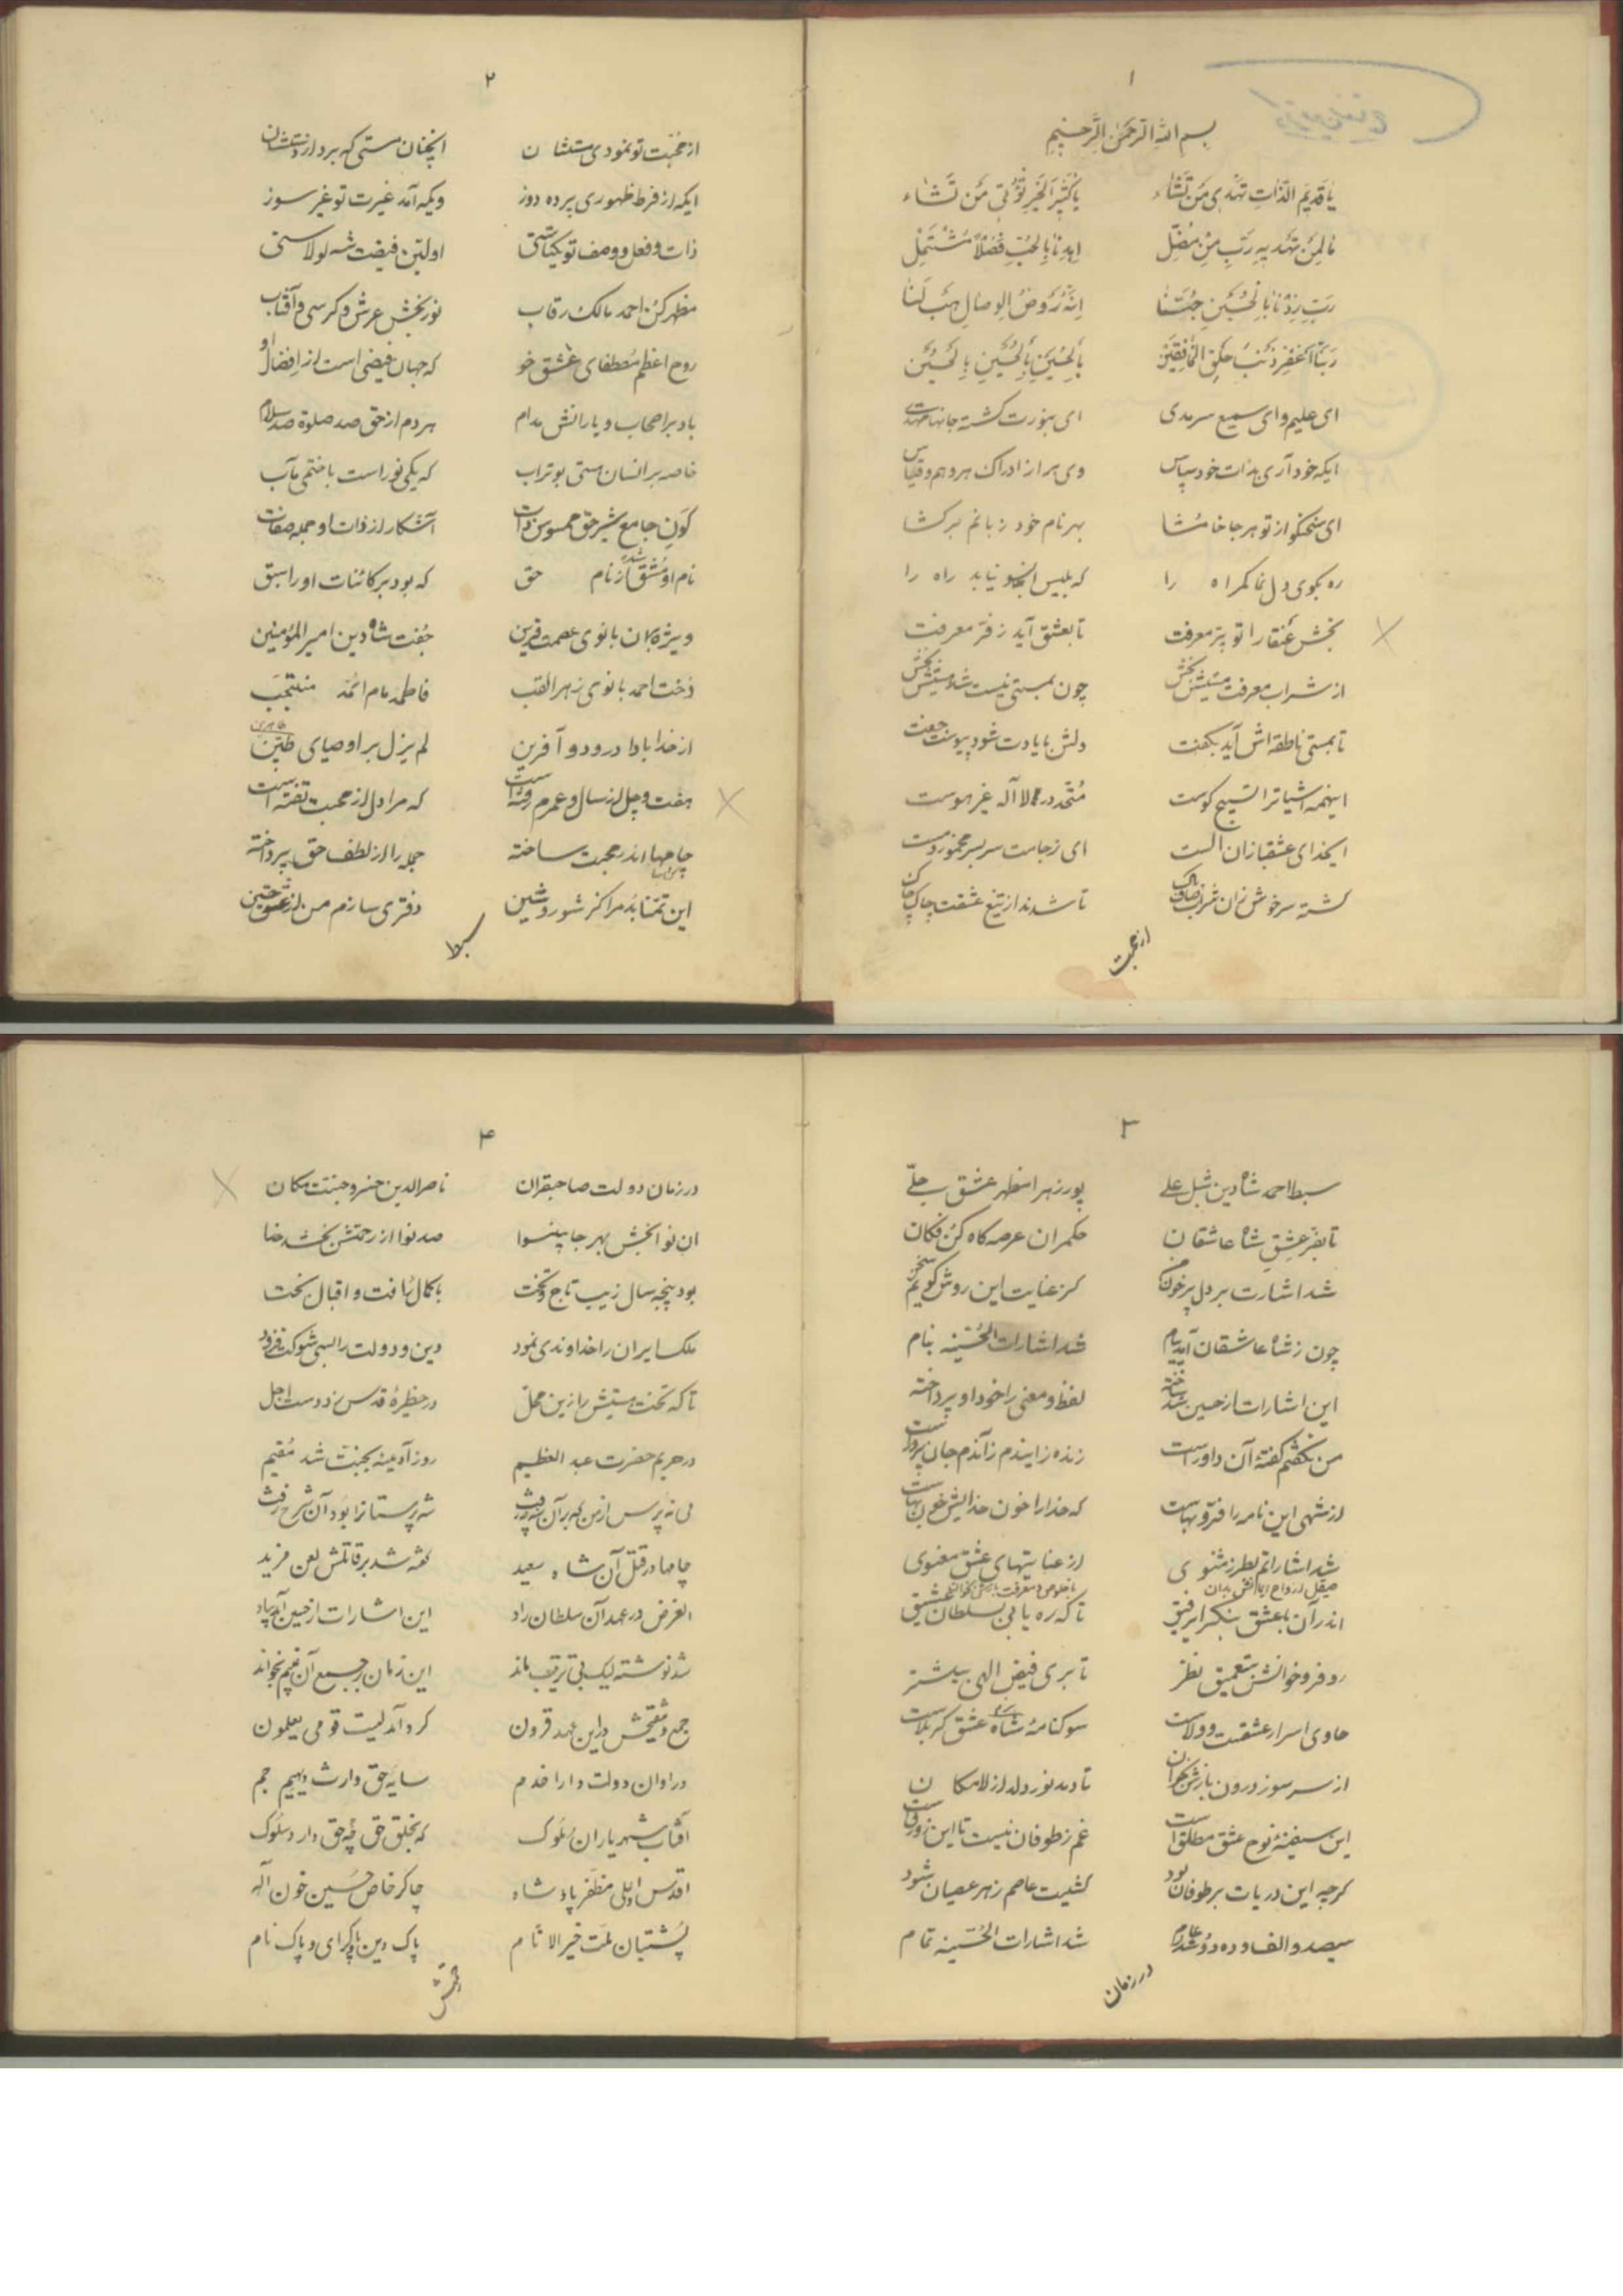 ۱
بسم الله الرحمن الرحیم
یا قدیم الذات تهدی من تشاء یا کثیر الخیر تؤتی من تشاء
ما لمن تهدیه رب من مضل اهدنا بالحب فضلا مشتمل
رب زدنا بالحسین حبنا انه روض الوصال هب لنا
ربنا اغفر ذنب بالحسین بالحسین بالحسین
ای علیم و ای سمیع سرمدی ای بنورت گشته جانها مهتدی
ایکه خود آری بذات خود سپاس وی مبرا از ادراک هر وهم و قیاس
ای سخنگو از تو هر جا خامشا بهر نام خود زبانم برگشا
ره بکوی دل نما گمراه را که بلیس نیابد راه را
بخش عنقا را تو پر معرفت تا بعشق آید ز فر معرفت
از شراب معرفت مستیش بخش چون بمستی نیست شد هستیش بخش
تا بمستی ناطقه اش آید بگفت دلش با یادت شود پیوست جفت
اینهمه اشیا ترا تسبیح گوست متحد در لا اله غیر هوست
ایخدای عشقبازان الست ای ز جامت سر بسر مخمور و مست
گشته سرخوش زان شراب صاف پاک تا شدند از تیغ عشقت چاک چاک
از محبت
۲
از محبت تو نمودی مستشان آنچنان مستی که برد از دستشان
ایکه از فرط ظهوری پرده دوز ویکه آمد غیرت تو غیر سوز
ذات و فعل و وصف تو یکتاستی اولین فیضت شه لولاستی
مظهر کن احمد مالک رقاب نور بخش عرش و کرسی و آفتاب
روح اعظم مصطفای عشق خو که جهان فیضی است از افضال او
باد بر اصحاب و یارانش مدام هر دم از حق صد صلوة صد سلام
خاصه بر انسان مستی بوتراب که یکی نور است با ختمی مآب
کون جامع شیر حق ممسوس ذات آشکار از ذات او جمله صفات
نام او مشتق شده از نام حق که بود بر کائنات او را سبق
ویژه بر آن بانوی عصمت قرین جفت شاه دین امیر المؤمنین
دخت احمد بانوی زهرا لقب فاطمه مام ائمه منتجب
از خدا بادا درود و آفرین لم یزل بر اوصیای طیبین
طاهرین
هفت و چل از سال و عمرم رفته است که مرا دل از محبت تفته است
چامها اندر محبت ساخته جمله را از لطف حق پرداخته
این تمنا بد مرا کز شور و شین دفتری سازم من از عشق حسین
سبط
۳
سبط احمد شاه دین شبل علی پور زهرا مظهر عشق جلی
تا بفر عشق شاه عاشقان حکمران عرصه گاه کن فکان
شد اشارت بر دل پر خون کز عنایت این روش گویم سخن
چون ز شاه عاشقان آمد پیام شد اشارات الحسینیه بنام
این اشارات از حسین شد ساخته لفظ و معنی را خود او پرداخته
من نگفتم گفته آن داور است زنده زایندم زآندم جان پرور است
از شهی این نامه را فر و بهاست که خدا را خون خدایش خونبهاست
شد اشاراتم بطرز مثنوی از عنایتهای عشق معنوی
صیقل ارواح بدان با خلوص و معرفت
اندر آن با عشق بنگر ای رفیق تا که ره یابی بسلطان عشیق
رو فرو خوانش بتعمیق نظر تا بری فیض الهی بیشتر
حاوی اسرار عشقست و ولاست سوگنامه شاه عشق کربلاست
از سر سوز درون بازش بخوان تا دمد نور دلت از لامکان
این سفینه نوح عشق مطلق است غم ز طوفان نیست تا این زورق است
گرچه این دریات بر طوفان بود کشتیت عاصم ز هر عصیان شود
سیصد و الف و ده و دو شد عام شد اشارات الحسینیه تمام
در زمان
۴
در زمان دولت صاحبقران ناصر الدین خسرو جنت مکان
آن نوا بخش بهر جا بینوا صد نوا از رحمتش بخشد خدا
بود پنجه سال زیب تاج و تخت با کمال رأفت و اقبال بخت
ملک ایران را خداوندی نمود دین و دولت را بسی شوکت فزود
تا که تخت هستیش را زین محل در حظیره قدس زد دست اجل
در حریم حضرت عبد العظیم روز آدینه بجنت شد مقیم
می نپرس از من که بر آن شه چه رفت شه پرستانرا بود آن شرح زفت
چامها در قتل آن شاه سعید گفته شد بر قاتلش لعن مزید
الغرض در عهد آن سلطان راد این اشارات از حسین آمد بیاد
شد نوشته لیک بی ترتیب ماند این زمان بر جمع آن
جمع و تنقیحش در این عهد قرون کرد آمد لیت قومی یعلمون
در اوان دولت دارا خدم سایه حق وارث دیهیم جم
آفتاب شهریاران ملوک که بخلق حق چه حق دارد سلوک
اقدس اعلی مظفر پادشاه چاکر خاص حسین خون اله
پشتبان ملت خیر الانام پاک دین و پاک رای و پاک نام